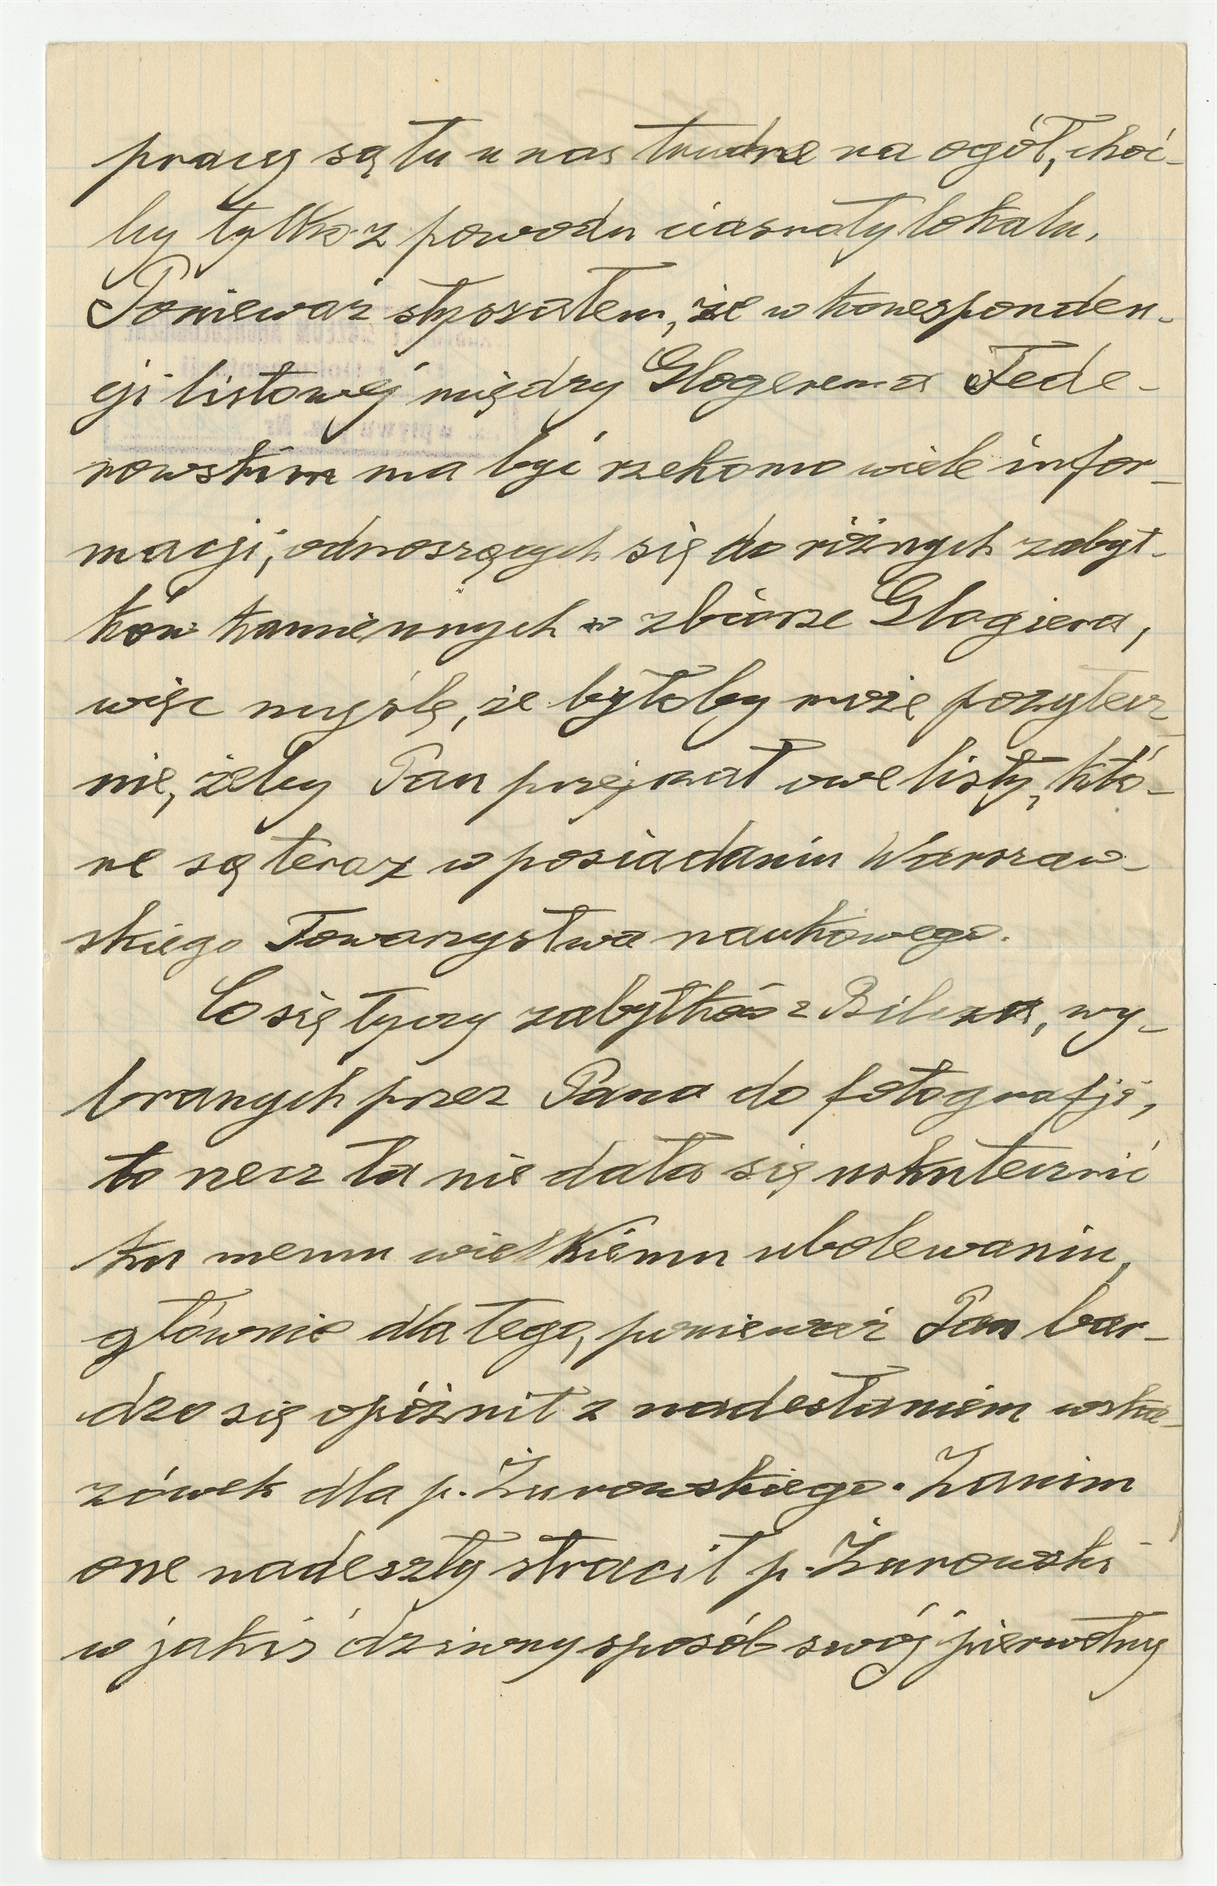 pracy są tu u nas trudne na ogół, choć-
by tylko z powodu ciasnoty lokalu.
Ponieważ słyszałem, że w koresponden-
cji listowej między Glogerem a Fede-
rowskim ma być rzekomo wiele infor-
macji, odnoszących się do różnych zabyt-
ków kamiennych w zbiorze Glogiera,
więc myślę, że byłoby może pożytecz-
nie, żeby Pan przejrzał owe listy, któ-
re są teraz w posiadaniu Warszaw-
skiego Towarzystwa naukowego.
Co się tyczy zabytków z Bilcza, wy-
branych przez Pana do fotografji,
to rzecz ta nie dała się uskutecznić
ku memu wielkiemu ubolewaniu,
głównie dla tego, ponieważ Pan bar-
dzo się opóźnił z nadesłaniem wska-
zówek dla p. Żurowskiego. Zanim
one nadeszły stracił p. Żurowski
w jakiś dziwny sposób swój pierwotny